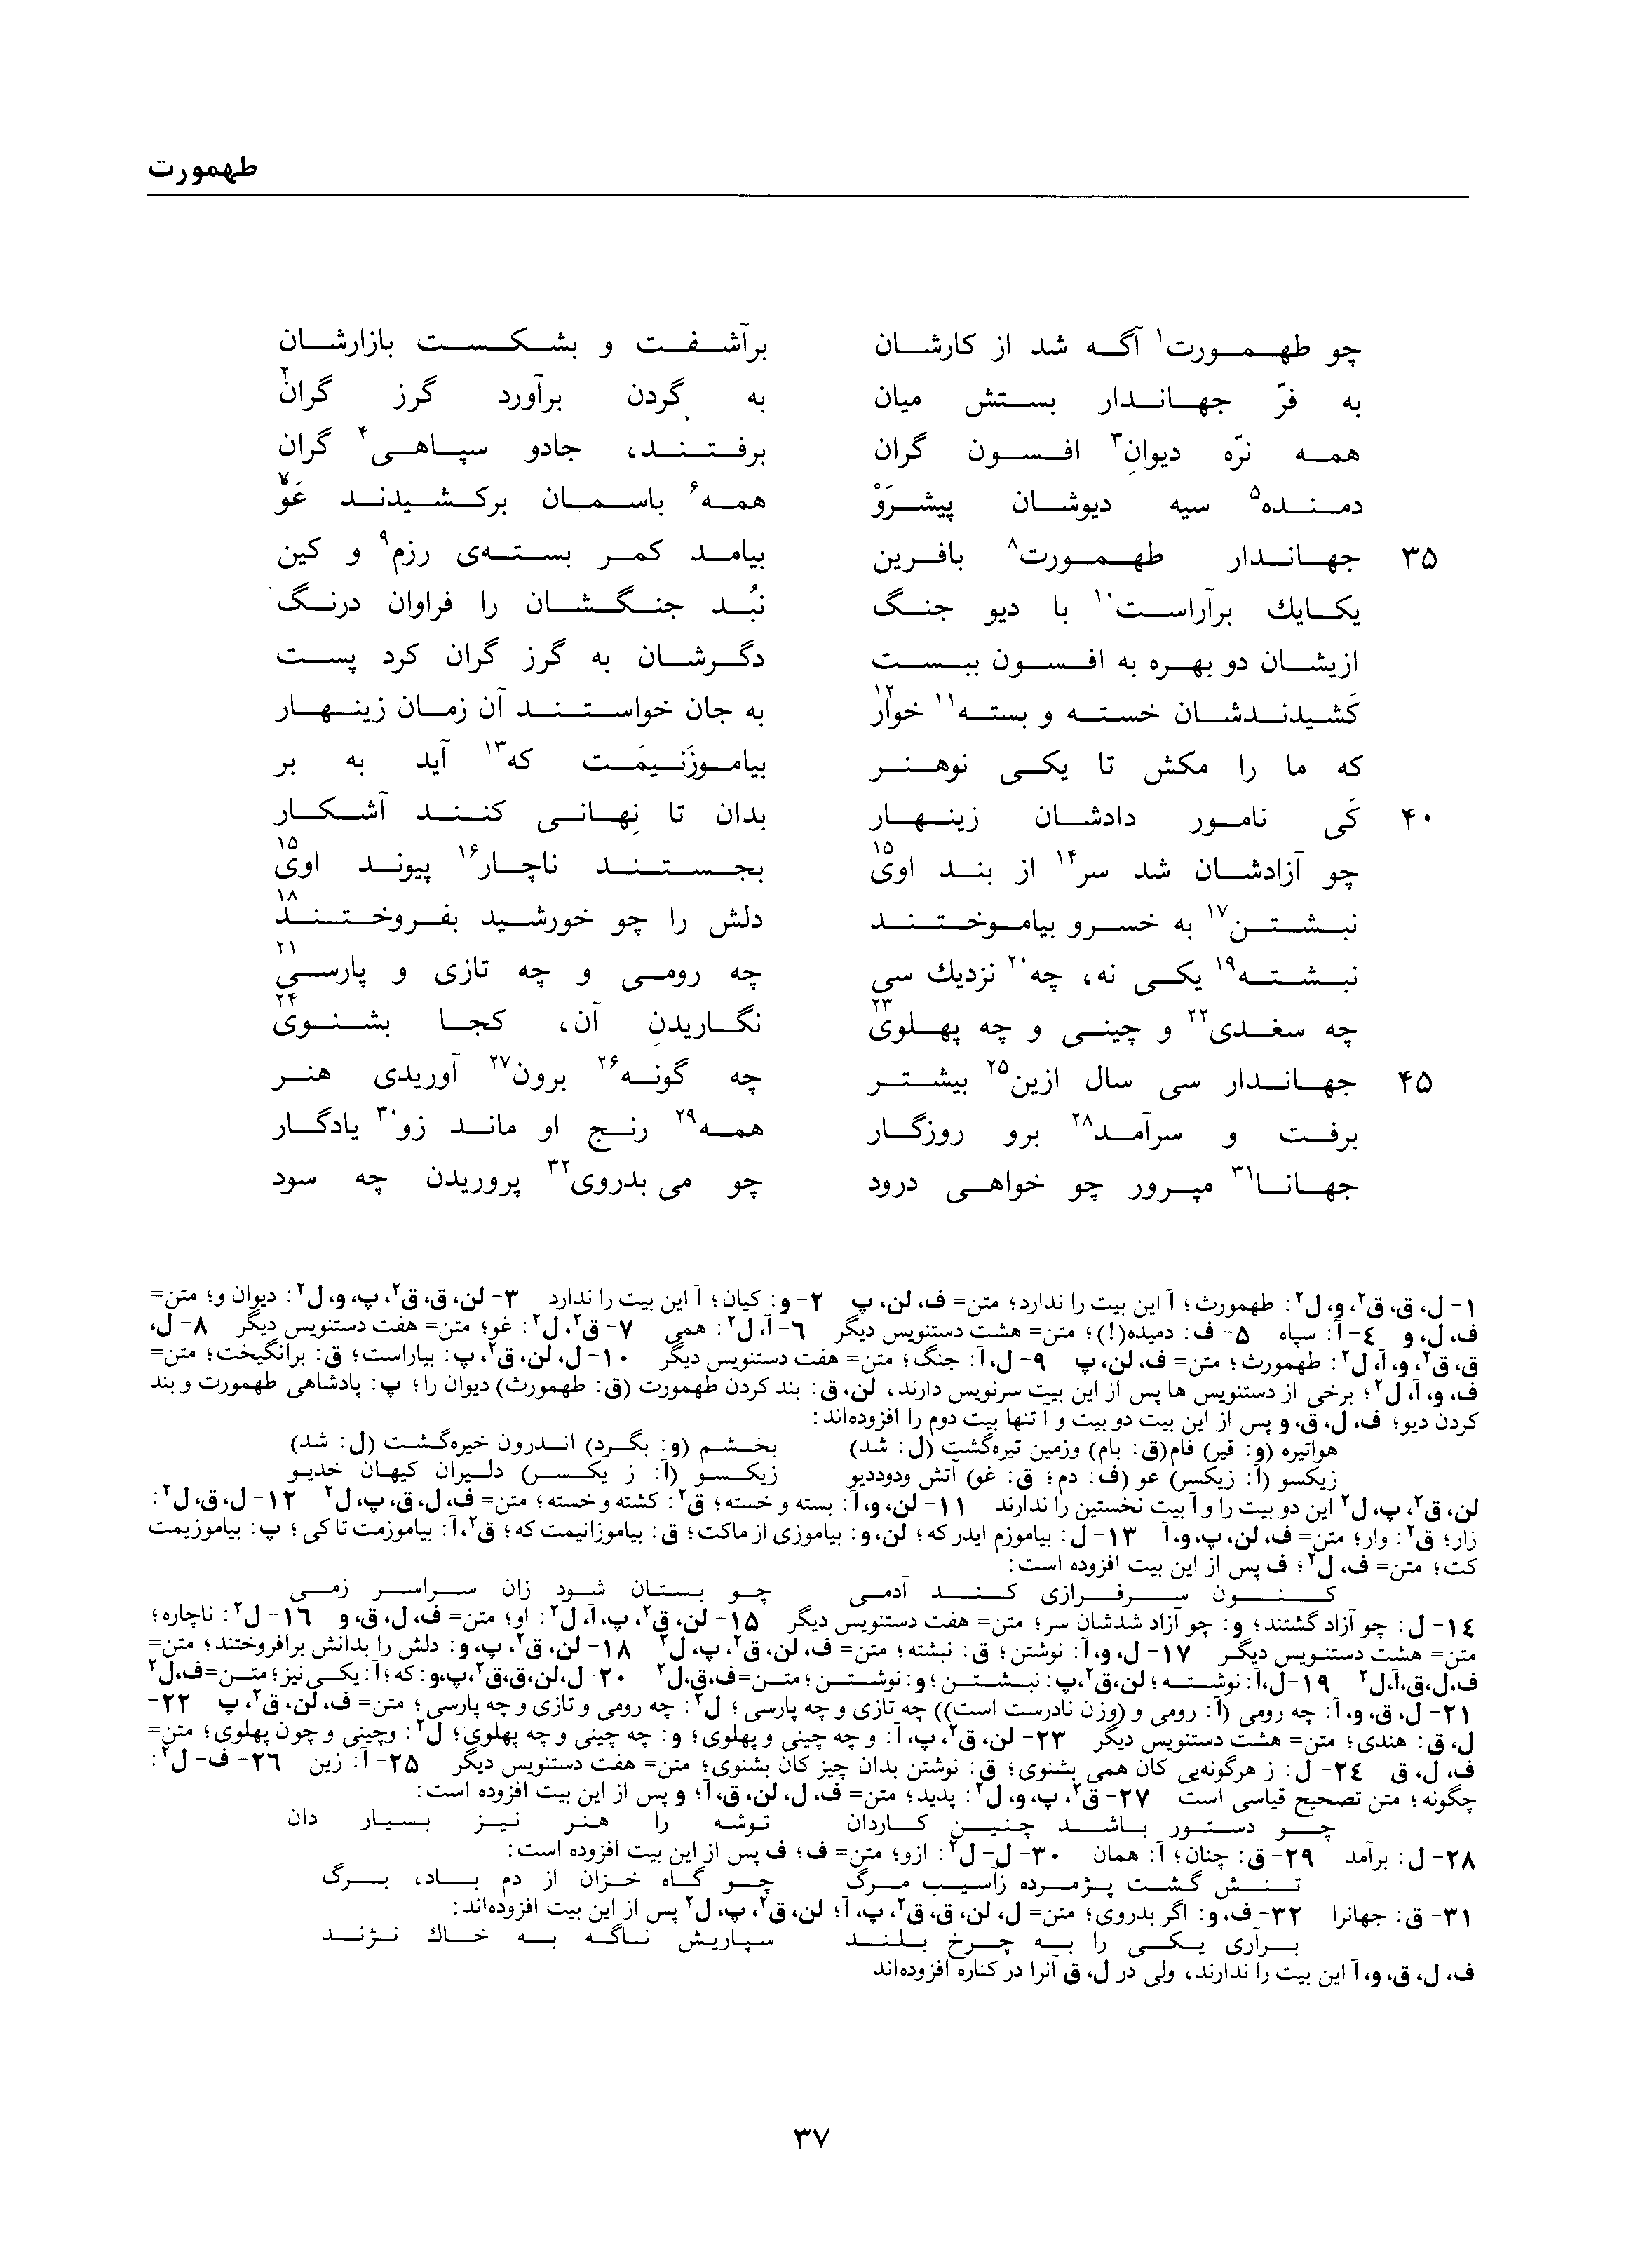 طهمورت
چو طهمورت¹ آگه شد از کارشان برآشفت و بشکست بازارشان
به فرّ جهاندار بستش میان به گردن برآورد گرز گران²
همه نرّه دیوان³ افسون گران برفتند، جادو سپاهی⁴ گران
دمنده⁵ سیه دیوشان پیشرَوْ همه⁶ باسمان برکشیدند غَوْ⁷
۳۵ جهاندار طهمورت⁸ بافرین بیامد کمر بسته‌ی رزم⁹ و کین
یکایك برآراست¹⁰ با دیو جنگ نبُد جنگشان را فراوان درنگ
ازیشان دو بهره به افسون ببست دگرشان به گرز گران کرد پست
کَشیدندشان خسته و بسته¹¹ خوار¹² به جان خواستند آن زمان زینهار
که ما را مکش تا یکی نوهنر بیاموزَنیمَت که¹³ آید به بر
۴۰ کَی نامور دادشان زینهار بدان تا نِهانی کنند آشکار
چو آزادشان شد سر¹⁴ از بند اوی¹⁵ بجستند ناچار¹⁶ پیوند اوی¹⁵
نبشتن¹⁷ به خسرو بیاموختند دلش را چو خورشید بفروختند¹⁸
نبشته¹⁹ یکی نه، چه²⁰ نزدیك سی چه رومی و چه تازی و پارسی²¹
چه سغدی²² و چینی و چه پهلوی²³ نگاریدنِ آن، کجا بشنوی²⁴
۴۵ جهاندار سی سال ازین²⁵ بیشتر چه گونه²⁶ برون²⁷ آوریدی هنر
برفت و سرآمد²⁸ برو روزگار همه²⁹ رنج او ماند زو³⁰ یادگار
جهانا³¹ مپرور چو خواهی درود چو می بدروی³² پروریدن چه سود
۱- ل، ق، ق²، و، ل²: طهمورث؛ آ این بیت را ندارد؛ متن= ف، لن، پ ۲- و: کیان؛ آ این بیت را ندارد ۳- لن، ق، ق²، پ، و، ل²: دیوان و؛ متن=
ف، ل، و ۴- آ: سپاه ۵- ف: دمیده(!)؛ متن= هشت دستنویس دیگر ۶- آ، ل²: همی ۷- ق²، ل²: غو؛ متن= هفت دستنویس دیگر ۸- ل،
ق، ق²، و، آ، ل²: طهمورث؛ متن= ف، لن، پ ۹- ل، آ: جنگ؛ متن= هفت دستنویس دیگر ۱۰- ل، لن، ق²، پ: بیاراست؛ ق: برانگیخت؛ متن=
ف، و، آ، ل²؛ برخی از دستنویس ها پس از این بیت سرنویس دارند، لن، ق: بند کردن طهمورت (ق: طهمورث) دیوان را؛ پ: پادشاهی طهمورت و بند
کردن دیو؛ ف، ل، ق، و پس از این بیت دو بیت و آ تنها بیت دوم را افزوده‌اند:
هواتیره (و: قیر) فام(ق: بام) وزمین تیره‌گشت (ل: شد) بخشم (و: بگرد) اندرون خیره‌گشت (ل: شد)
زیکسو (آ: زیکس) عو (ف: دم؛ ق: غو) آتش ودوددیو زیکسو (آ: ز یکسر) دلیران کیهان خدیو
لن، ق²، پ، ل² این دو بیت را و آ بیت نخستین را ندارند ۱۱- لن، و، آ: بسته و خسته؛ ق²: کشته و خسته؛ متن= ف، ل، ق، پ، ل² ۱۲- ل، ق، ل²:
زار؛ ق²: وار؛ متن= ف، لن، پ، و، آ ۱۳- ل: بیاموزم ایدر که؛ لن، و: بیاموزی از ماکت؛ ق: بیاموزانیمت که؛ ق²، آ: بیاموزمت تا کی؛ پ: بیاموزیمت
کت؛ متن= ف، ل²؛ ف پس از این بیت افزوده است:
کنون سرفرازی کند آدمی چو بستان شود زان سراسر زمی
۱۴- ل: چو آزاد گشتند؛ و: چو آزاد شدشان سر؛ متن= هفت دستنویس دیگر ۱۵- لن، ق²، پ، آ، ل²: او؛ متن= ف، ل، ق، و ۱۶- ل²: ناچاره؛
متن= هشت دستنویس دیگر ۱۷- ل، و، آ: نوشتن؛ ق: نبشته؛ متن= ف، لن، ق²، پ، ل² ۱۸- لن، ق²، پ، و: دلش را بدانش برافروختند؛ متن=
ف، ل، ق، آ، ل² ۱۹- ل، آ: نوشته؛ لن، ق²، پ: نبشتن؛ و: نوشتن؛ متن= ف، ق، ل² ۲۰- ل، لن، ق، ق²، پ، و: که؛ آ: یکی نیز؛ متن= ف، ل²
۲۱- ل، ق، و، آ: چه رومی (آ: رومی و (وزن نادرست است)) چه تازی و چه پارسی؛ ل²: چه رومی و تازی و چه پارسی؛ متن= ف، لن، ق²، پ ۲۲-
ل، ق: هندی؛ متن= هشت دستنویس دیگر ۲۳- لن، ق²، پ، آ: و چه چینی و پهلوی؛ و: چه چینی و چه پهلوی؛ ل²: وچینی و چون پهلوی؛ متن=
ف، ل، ق ۲۴- ل: ز هرگونه‌یی کان همی بشنوی؛ ق: نوشتن بدان چیز کان بشنوی؛ متن= هفت دستنویس دیگر ۲۵- آ: زین ۲۶- ف- ل²:
چگونه؛ متن تصحیح قیاسی است ۲۷- ق²، پ، و، ل²: پدید؛ متن= ف، ل، لن، ق، آ؛ و پس از این بیت افزوده است:
چو دستور باشد چنین کاردان توشه را هنر نیز بسیار دان
۲۸- ل: برآمد ۲۹- ق: چنان؛ آ: همان ۳۰- ل- ل²: ازو؛ متن= ف؛ ف پس از این بیت افزوده است:
تنش گشت پژمرده زآسیب مرگ چو گاه خزان از دم باد، برگ
۳۱- ق: جهانرا ۳۲- ف، و: اگر بدروی؛ متن= ل، لن، ق، ق²، پ، آ؛ لن، ق²، پ، ل² پس از این بیت افزوده‌اند:
برآری یکی را به چرخ بلند سپاریش ناگه به خاك نژند
ف، ل، ق، و، آ این بیت را ندارند، ولی در ل، ق آنرا در کناره افزوده‌اند
۳۷